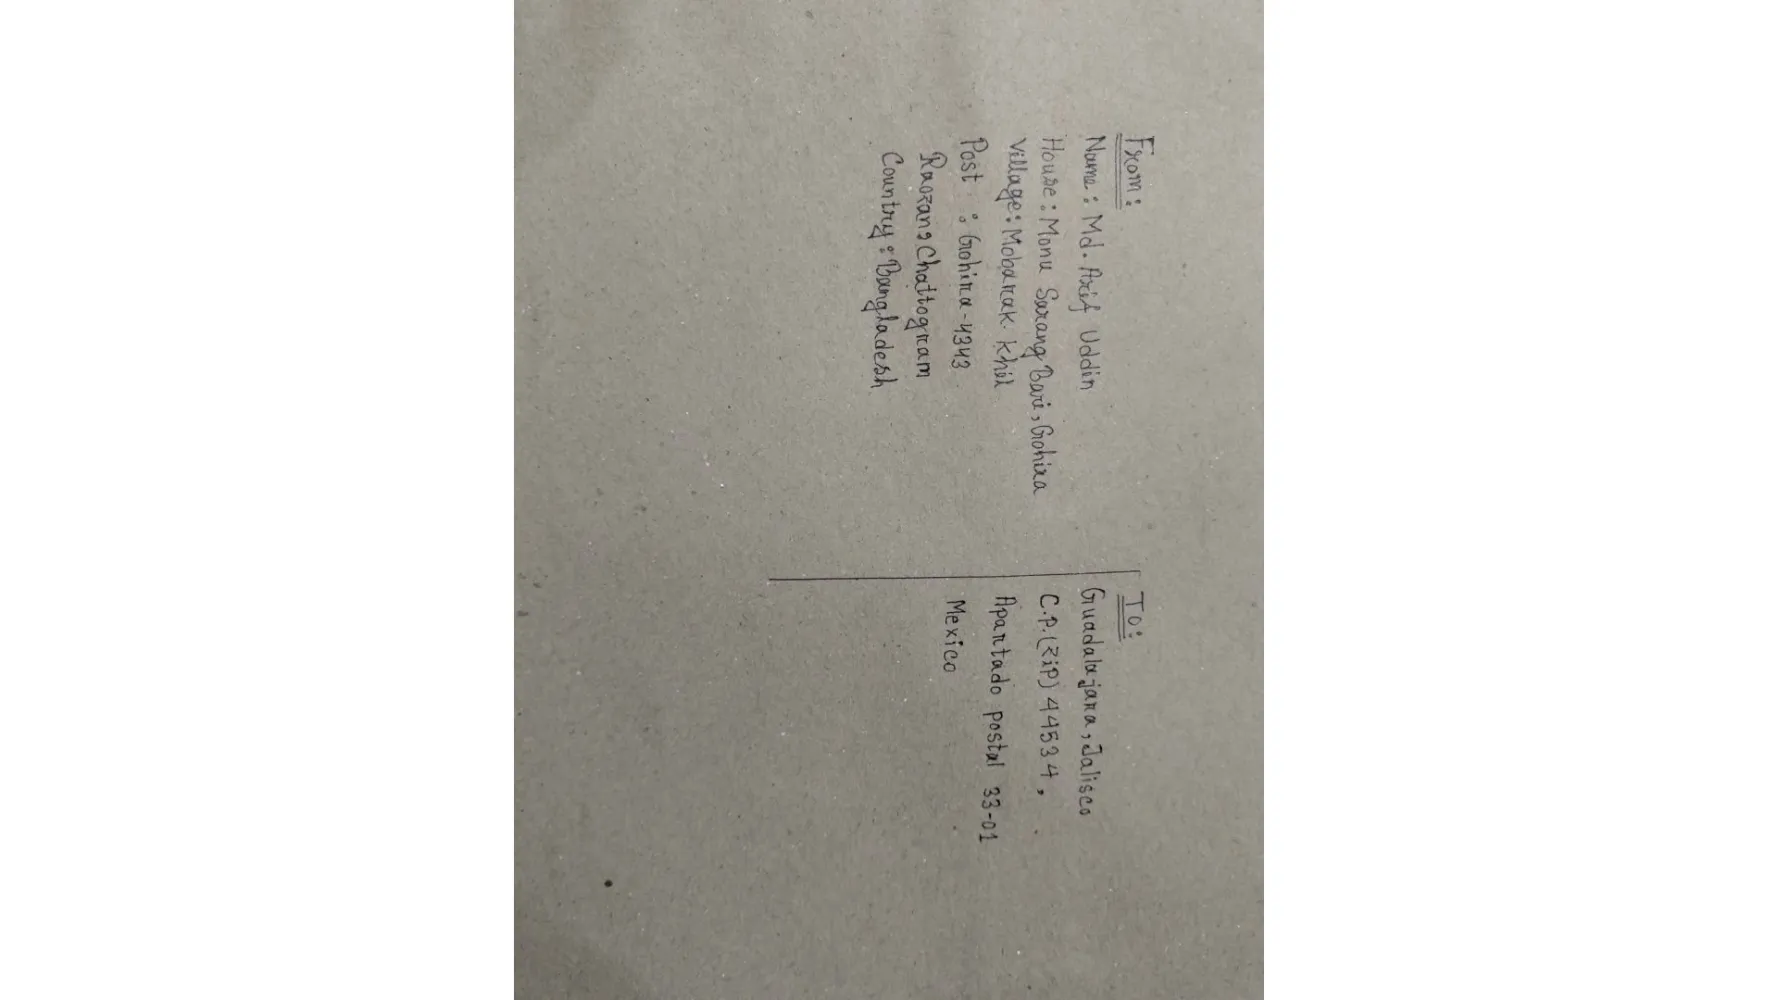 From:
Name: Md. Arif Uddin
House: Monu Sarang Bari, Gohira
Village: Mobarak khil
Post : Gohira-4343
Raozan, Chattogram
Country: Bangladesh
To:
Guadalajara, Jalisco
C.P.(ZiP) 44534,
Apartado postal 33-01
Mexico